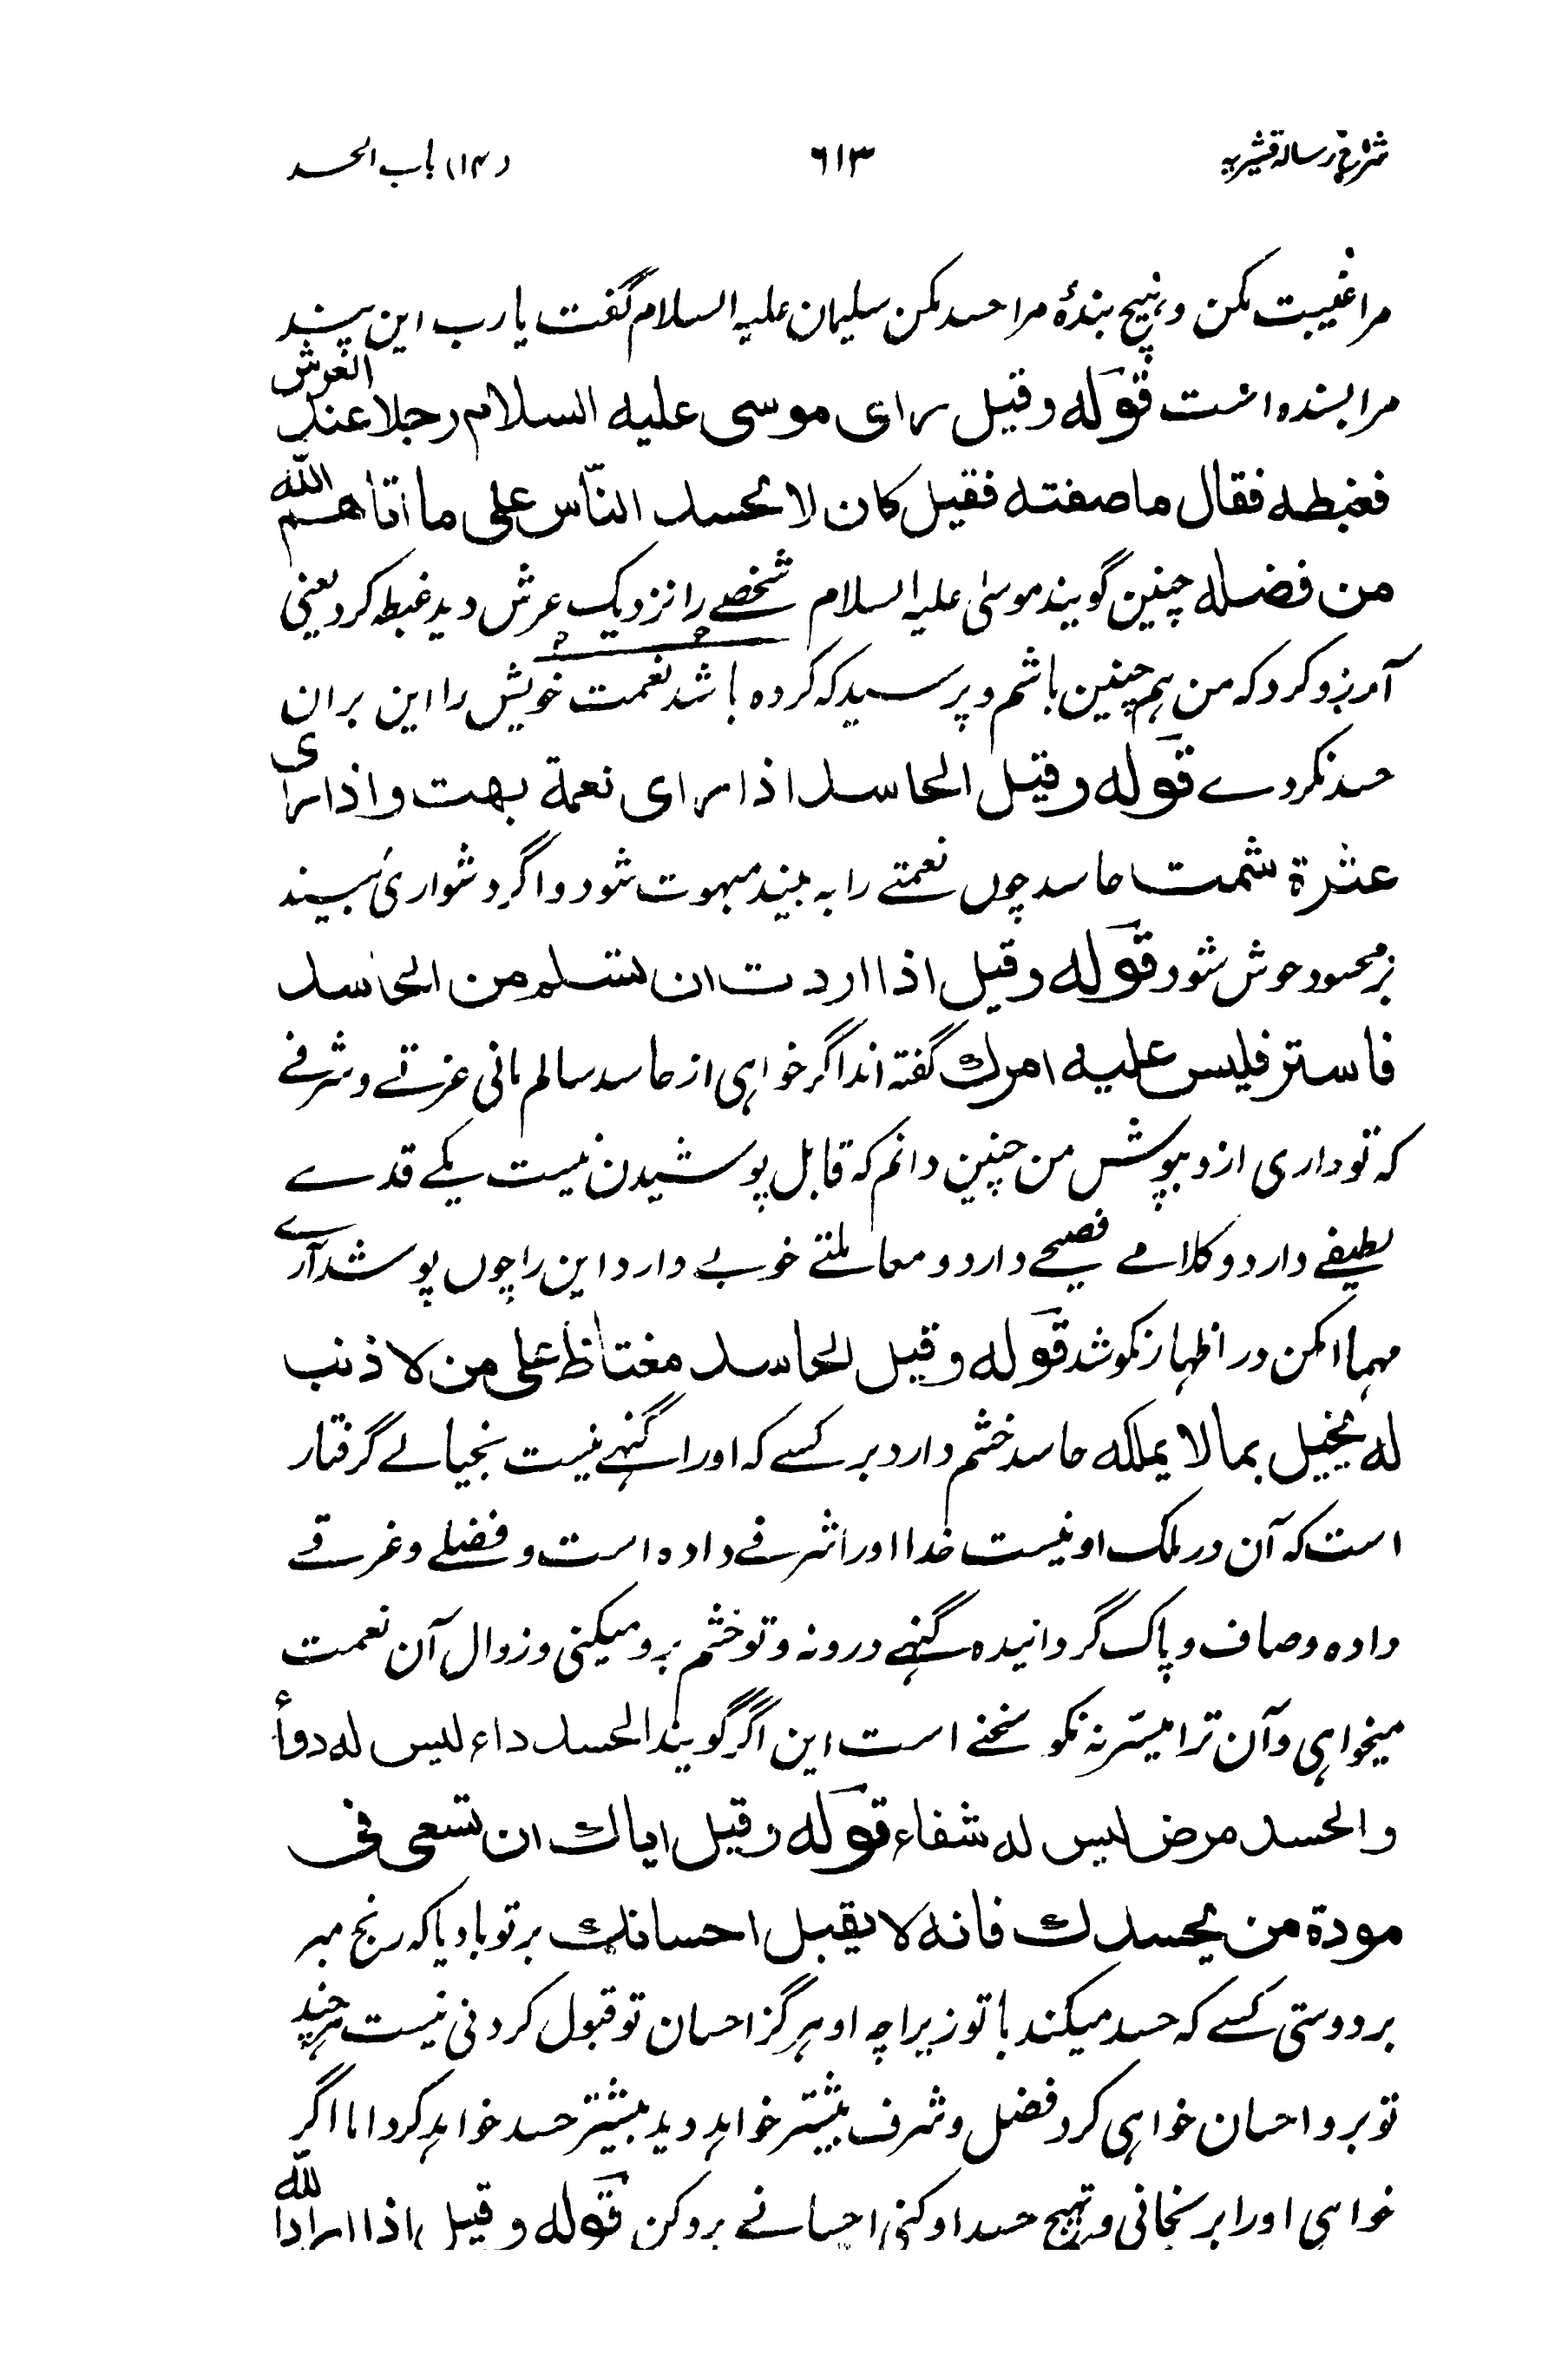 شرح رسالہ قشیریہ ٦١٣ (١٤) باب الحسد
مرا غیبت مکن و ہیچ بندۂ مرا حسد مکن سلیمان علیہ السلام گفت یا رب این پند
مرا بسندہ است قوله وقيل رای موسی علیه السلام رجلا عند العرش
فغبطه فقال ما صفته فقیل کان لا یحسد النّاس علی ما اتاهم الله
من فضله چنین گویند موسیٰ علیہ السلام شخصے را نزدیک عرش دید غبطہ کرد یعنی
آرزو کرد کہ من ہم چنین باشم و پرسید کہ کردہ باشد نعمت خویش را این بران
حسد نکردے قوله وقیل الحاسد اذا رای نعمة بهت واذا رای
عثرة شمت حاسد چوں نعمتے را بہ بیند مبہوت شود و اگر دشواری بیند
بر محسود خوش شود قوله وقیل اذا اردت ان تسلم من الحاسد
فاستر فلیس علیه امرك گفتہ اند اگر خواہی از حاسد سالم مانی عزتے و شرفے
کہ تو داری ازو بپوش من چنین دانم کہ قابل پوشیدن نیست یکے قدے
لطیفے دارد و کلامے فصیحے دارد و معاملتے خوبے دارد این را چوں پوشد آرے
مہما امکن در اظہار نکوشد قوله وقیل الحاسد مغتاظ علی من لا ذنب
له بخیل بما لا یملکه حاسد خشم دارد بر کسے کہ او را گنہے نیست بخیالے گرفتار
است کہ آن در ملک او نیست خدا او را شرفے دادہ است و فضلے و عزتے
دادہ و صاف و پاک گردانیدہ گنہے درو نہ و تو خشم برو میکنی و زوال آن نعمت
میخواہی و آن ترا میسّر نہ نکو سخنے است این اگر گویند الحسد داء لیس له دواء
والحسد مرض لیس له شفاء قوله وقیل ایاك ان تسعی فی
مودة من یحسدك فانه لا یقبل احسانك بر تو بادیا کہ رنج مبر
بر دوستی کسے کہ حسد میکند با تو زیراچہ او ہرگز احسان تو قبول کردنی نیست ہر چند
تو برو احسان خواہی کرد فضل و شرف بیشتر خواہد دید بیشتر حسد خواہد کرد اما اگر
خواہی او را برنجانی و تہیج حسد او کنی احسانے برو کن قوله وقیل اذا اراد الله